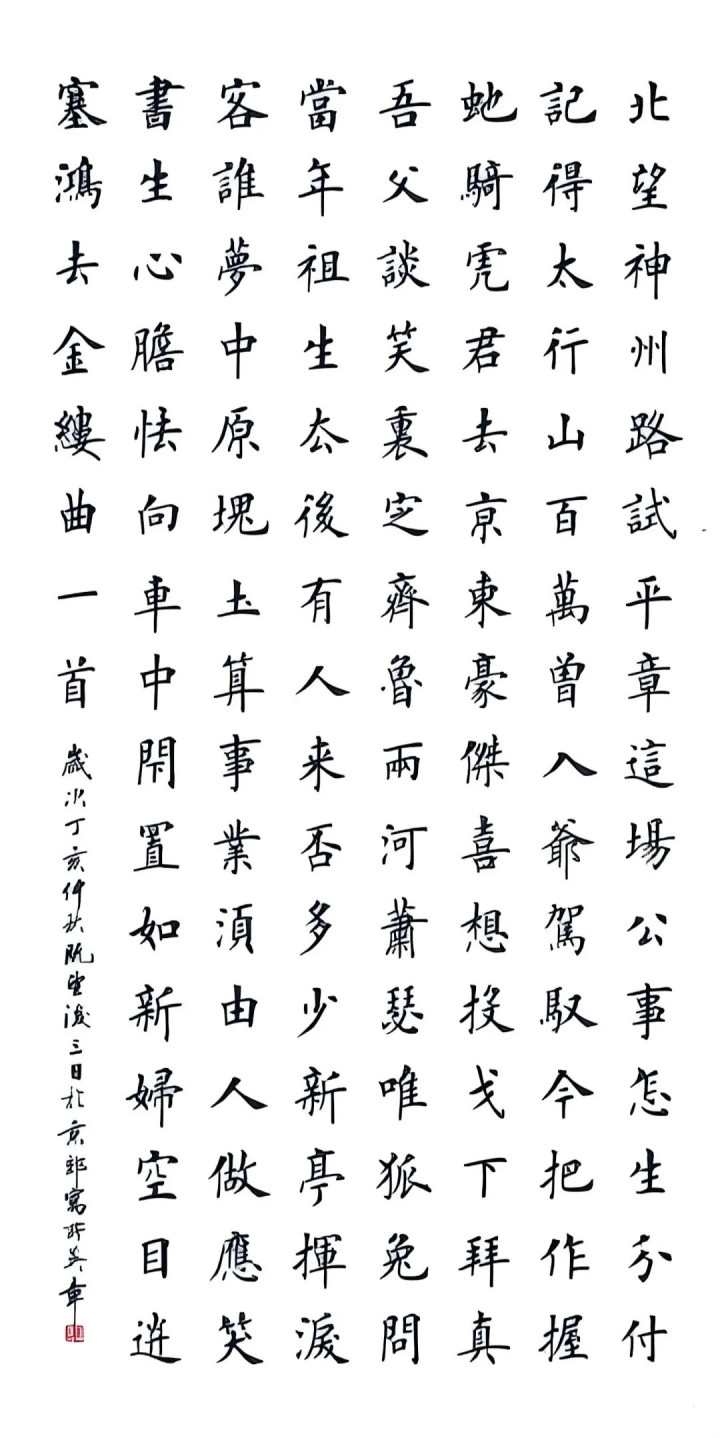 北望神州路試平章這場公事怎生分付
記得太行山百萬曾入爺駕馭今把作握
虵騎虎君去京東豪傑喜想投戈下拜真
吾父談笑裏定齊魯兩河蕭瑟唯狐兔問
當年祖生去後有人来否多少新亭揮淚
客誰夢中原塊土算事業須由人做應笑
書生心膽怯向車中閇置如新婦空目送
塞鴻去金縷曲一首
歲次丁亥仲秋既望後三日於京郊寓所